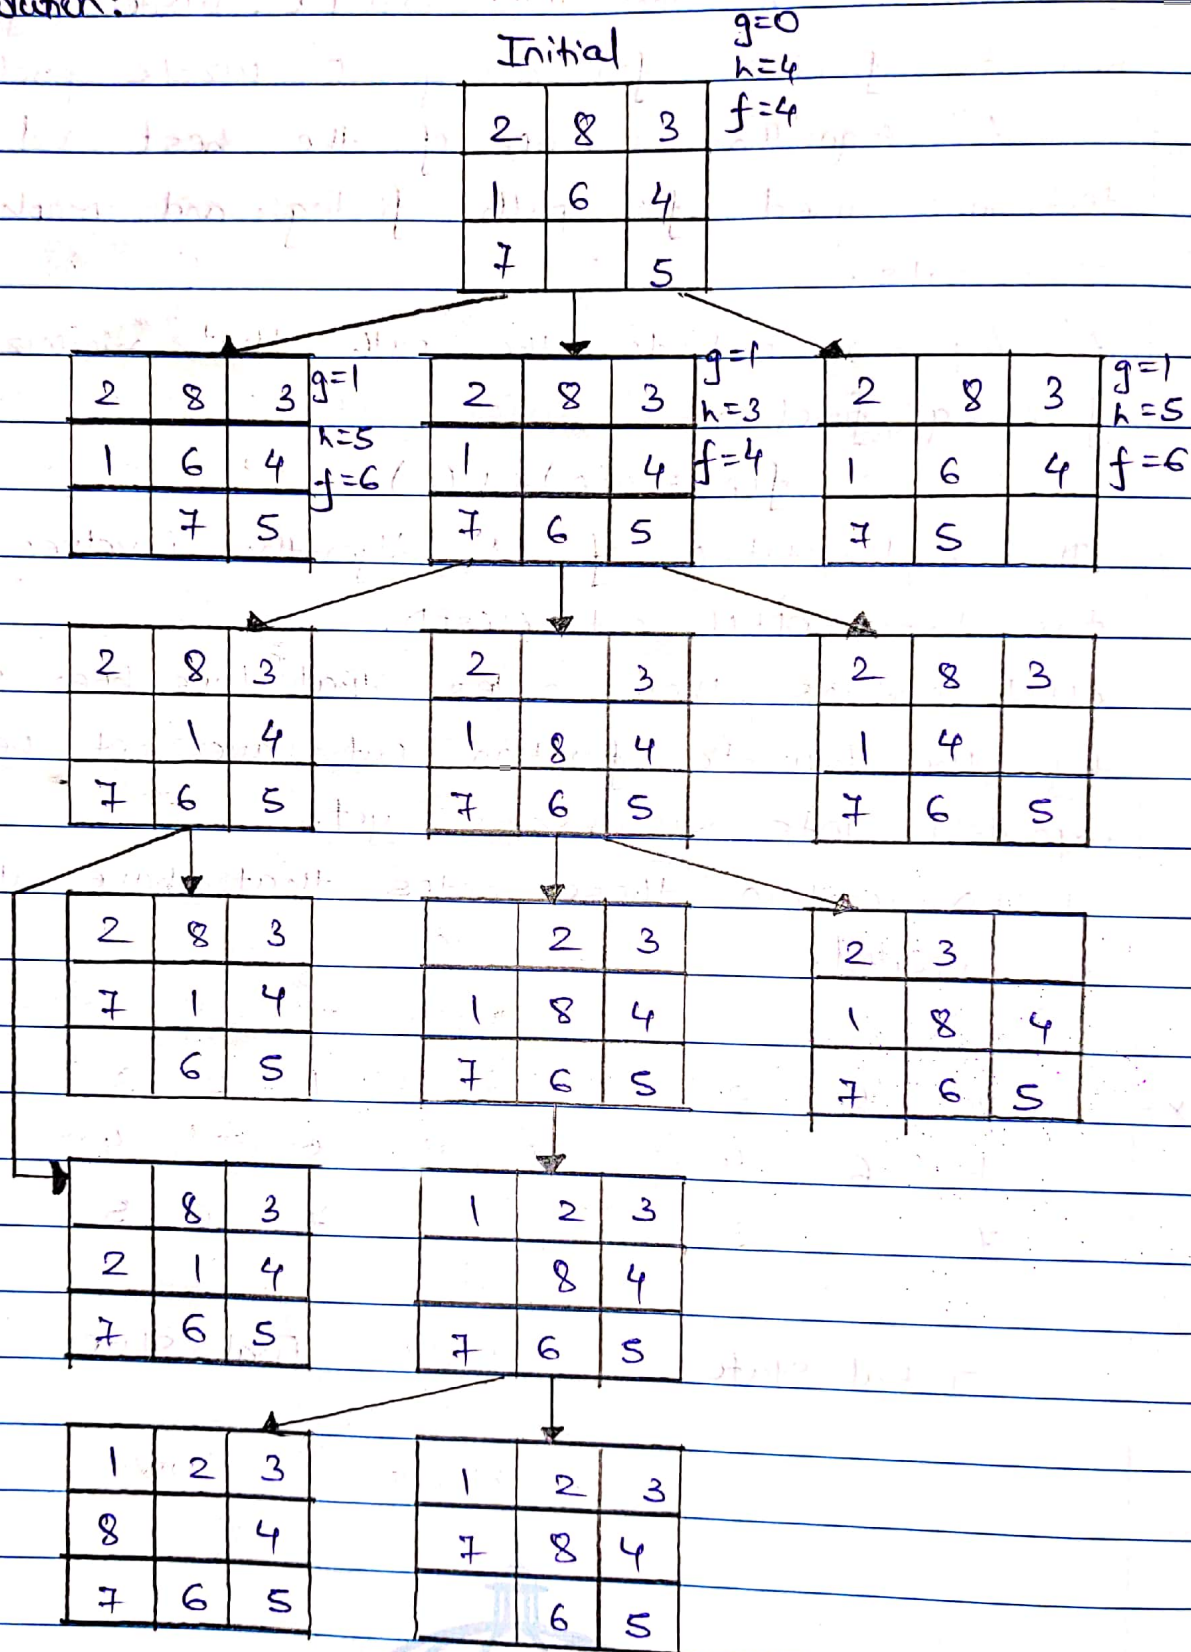 Initial
g=0
h=4
f=4
2 8 3
1 6 4
7 5
2 8 3
1 6 4
7 5
g=1
h=5
f=6
2 8 3
1 4
7 6 5
g=1
h=3
f=4
2 8 3
1 6 4
7 5
g=1
h=5
f=6
2 8 3
1 4
7 6 5
2 3
1 8 4
7 6 5
2 8 3
1 4
7 6 5
2 8 3
7 1 4
6 5
2 3
1 8 4
7 6 5
2 3
1 8 4
7 6 5
8 3
2 1 4
7 6 5
1 2 3
8 4
7 6 5
1 2 3
8 4
7 6 5
1 2 3
7 8 4
6 5